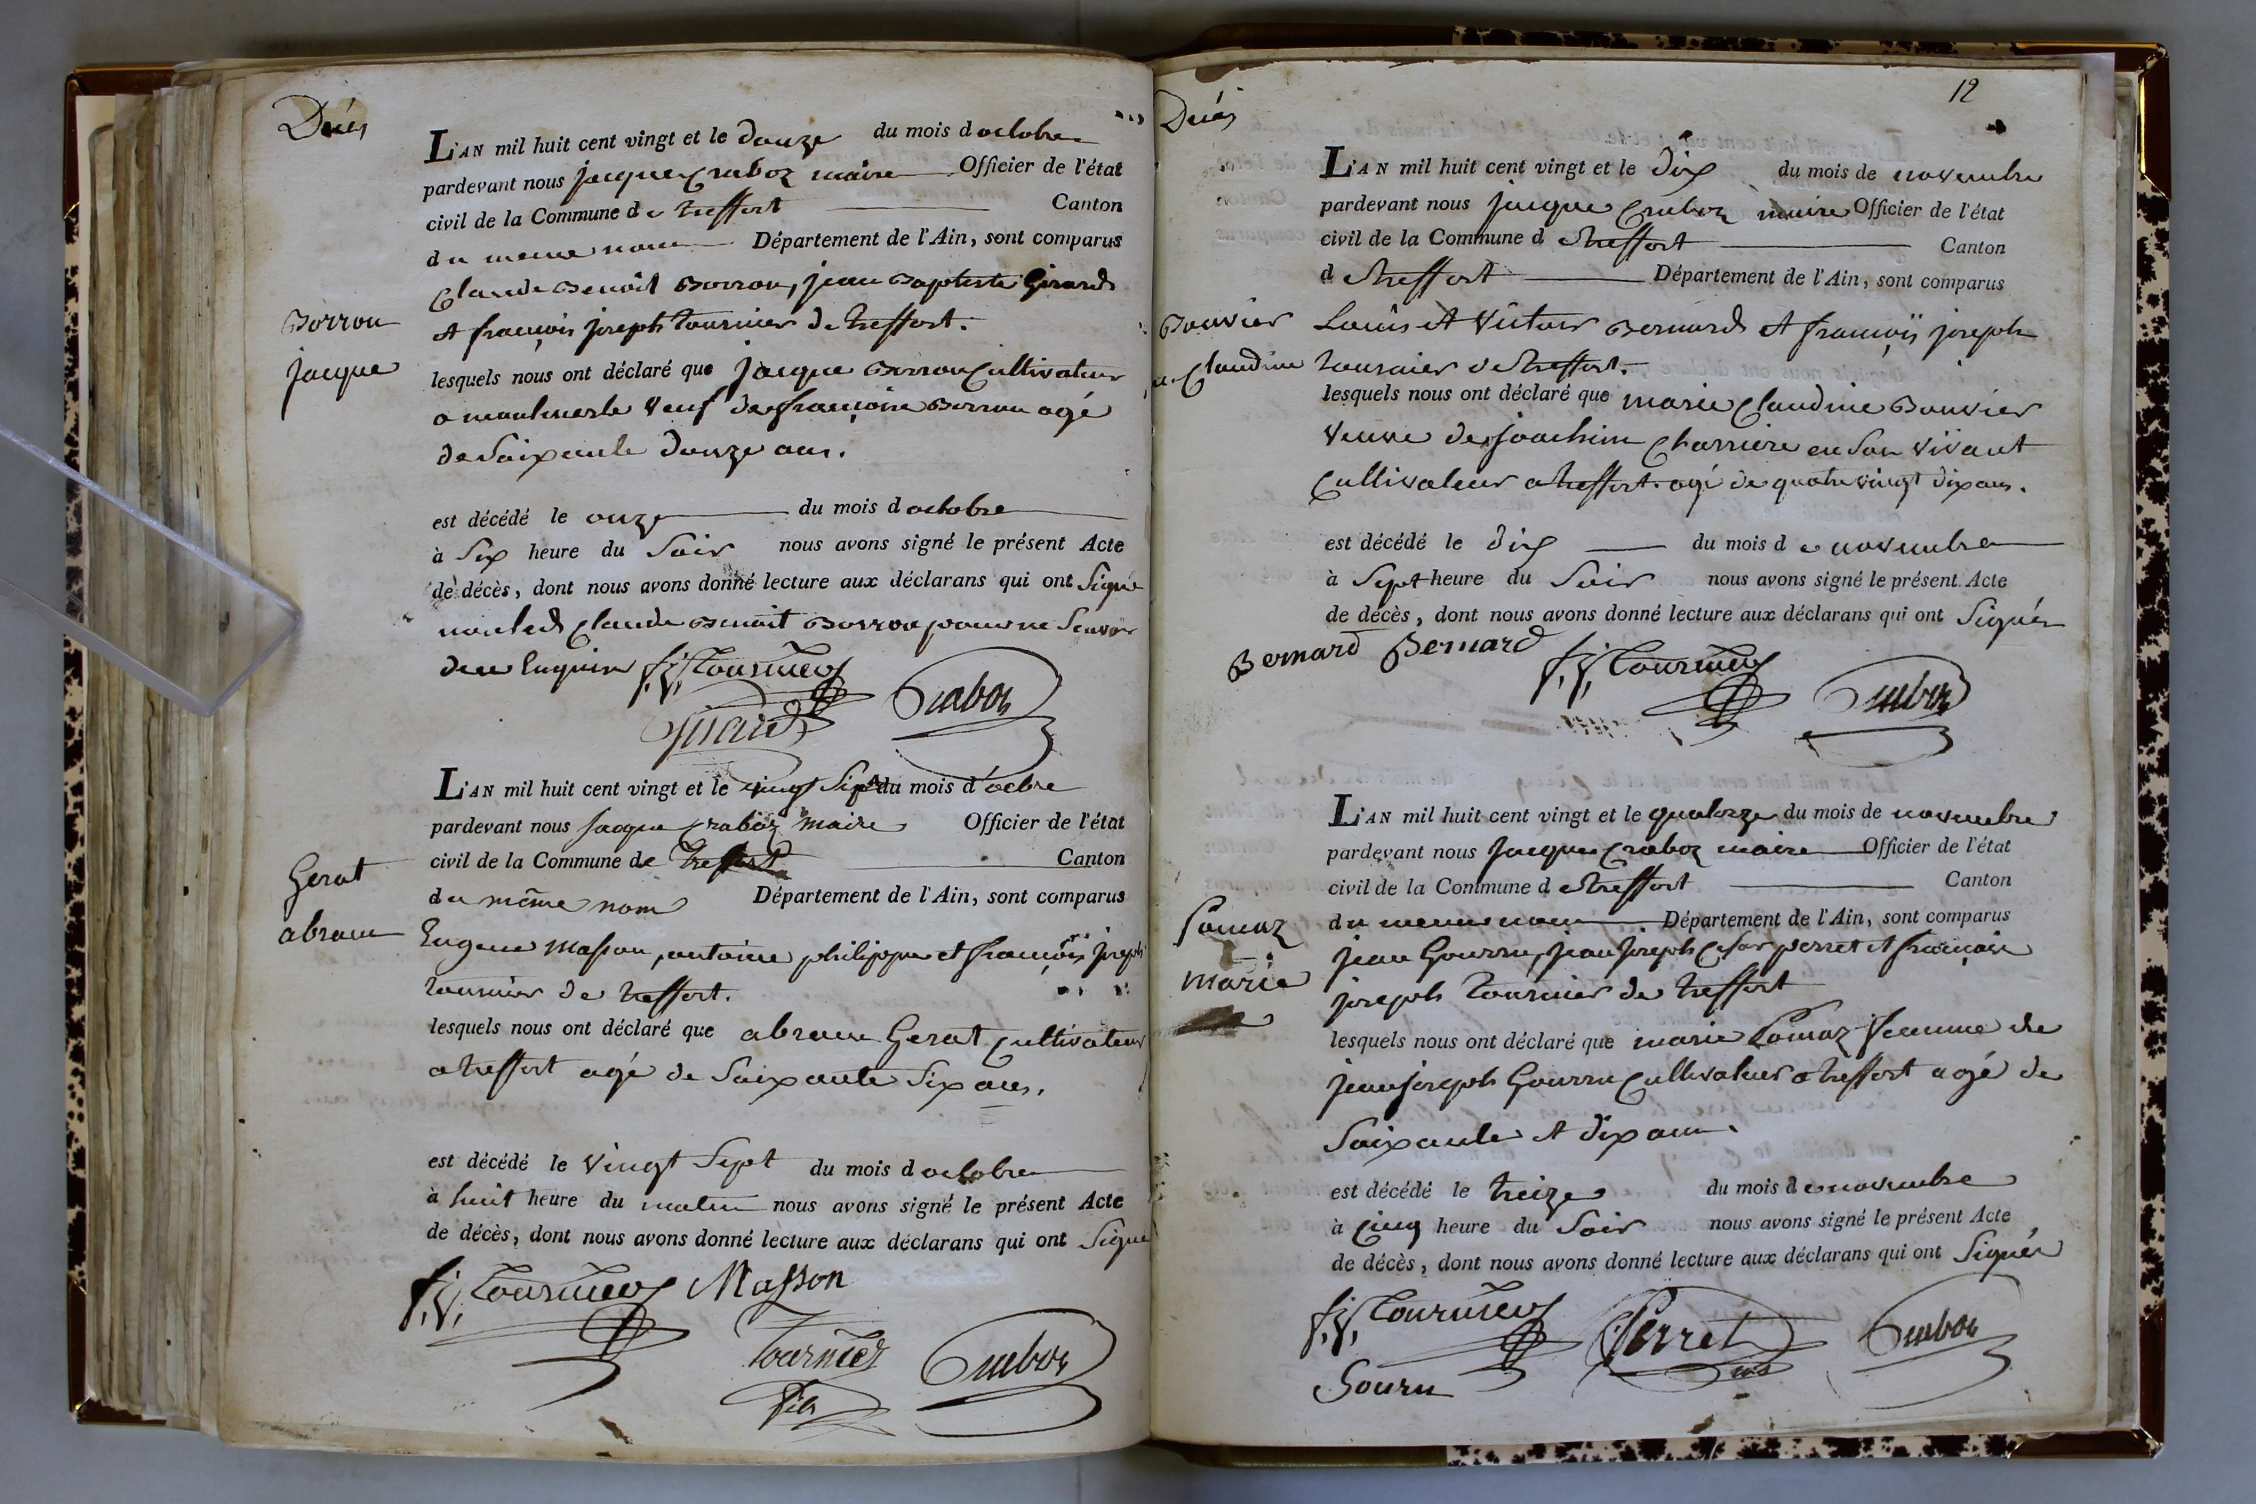 Décès
L'AN mil huit cent vingt et le douze du mois d octobre
pardevant nous jacque Craboz maire Officier de l'état
civil de la Commune de treffort Canton
du meme nom Département de l'Ain, sont comparus
Claude Benoit Borron, jean Baptiste Girard
Borron
et françois joseph tournier de treffort.
jacque
lesquels nous ont déclaré que jacque Borron Cultivateur
a veuf de françoise Borron agé
de Soixante douze ans.
est décédé le onze du mois d octobre
à Six heure du Soir nous avons signé le présent Acte
de décès, dont nous avons donné lecture aux déclarans qui ont Signé
non led Claude Benoit Borron pour ne Savoir
de ce Enquis f. j. Tournier
Girard Craboz
L'AN mil huit cent vingt et le vingt Sept du mois d'octbre
pardevant nous jacque Craboz maire Officier de l'état
civil de la Commune de Treffort Canton
Gerat
du même nom Département de l'Ain, sont comparus
abram
Eugene Masson, antoine philippe et françois joseph
tournier de treffort.
lesquels nous ont déclaré que abram Gerat Cultivateur
a treffort agé de Soixante Six ans.
est décédé le vingt Sept du mois d octobre
à huit heure du matin nous avons signé le présent Acte
de décès, dont nous avons donné lecture aux déclarans qui ont Signé
f. j. Tournier Masson
Tournier Craboz
fils
12
Décès
L'AN mil huit cent vingt et le Dix du mois de novembre
pardevant nous jacque Craboz maire Officier de l'état
civil de la Commune d etreffort Canton
d etreffort Département de l'Ain, sont comparus
Bouvier
Louis et Victor Bernard et françois joseph
Claudine
tournier de treffort.
lesquels nous ont déclaré que marie Claudine Bouvier
veuve de joachim Charriere en Son vivant
Cultivateur a treffort. agé de quatre vingt dix ans.
est décédé le dix du mois d e novembre
à Sept heure du Soir nous avons signé le présent Acte
de décès, dont nous avons donné lecture aux déclarans qui ont Signés
Bernard Bernard f. j. Tournier
Craboz
L'AN mil huit cent vingt et le quatorze du mois de novembre
pardevant nous jacque Craboz maire Officier de l'état
civil de la Commune d etreffort Canton
du meme nom Département de l'Ain, sont comparus
marie
jean Gourru, jean joseph Cesar perret et françois
joseph Tournier de treffort
lesquels nous ont déclaré que marie femme de
jean joseph Gourru Cultivateur a treffort agé de
Soixante et dix ans.
est décédé le treize du mois d e novembre
à Cinq heure du Soir nous avons signé le présent Acte
de décès, dont nous avons donné lecture aux déclarans qui ont Signés
f. j. Tournier Perret Craboz
Gouru